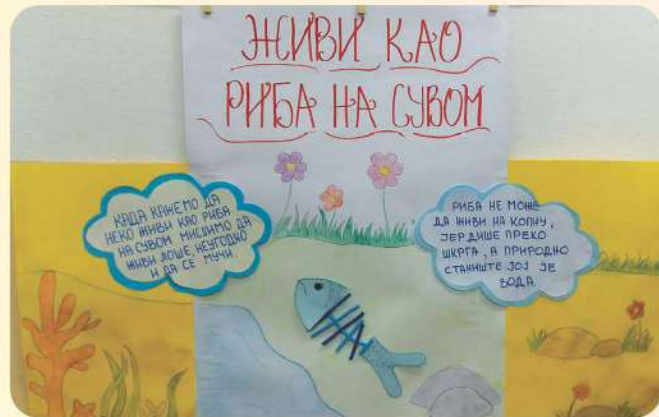 ЖИВИ КАО
РИБА НА СУВОМ
КАДА КАЖЕМО ДА
НЕКО ЖИВИ КАО РИБА
НА СУВОМ МИСЛИМО ДА
ЖИВИ ЛОШЕ, НЕУГОДНО
И ДА СЕ МУЧИ.
РИБА НЕ МОЖЕ
ДА ЖИВИ НА КОПНУ,
ЈЕР ДИШЕ ПРЕКО
ШКРГА, А ПРИРОДНО
СТАНИШТЕ ЈОЈ ЈЕ
ВОДА.